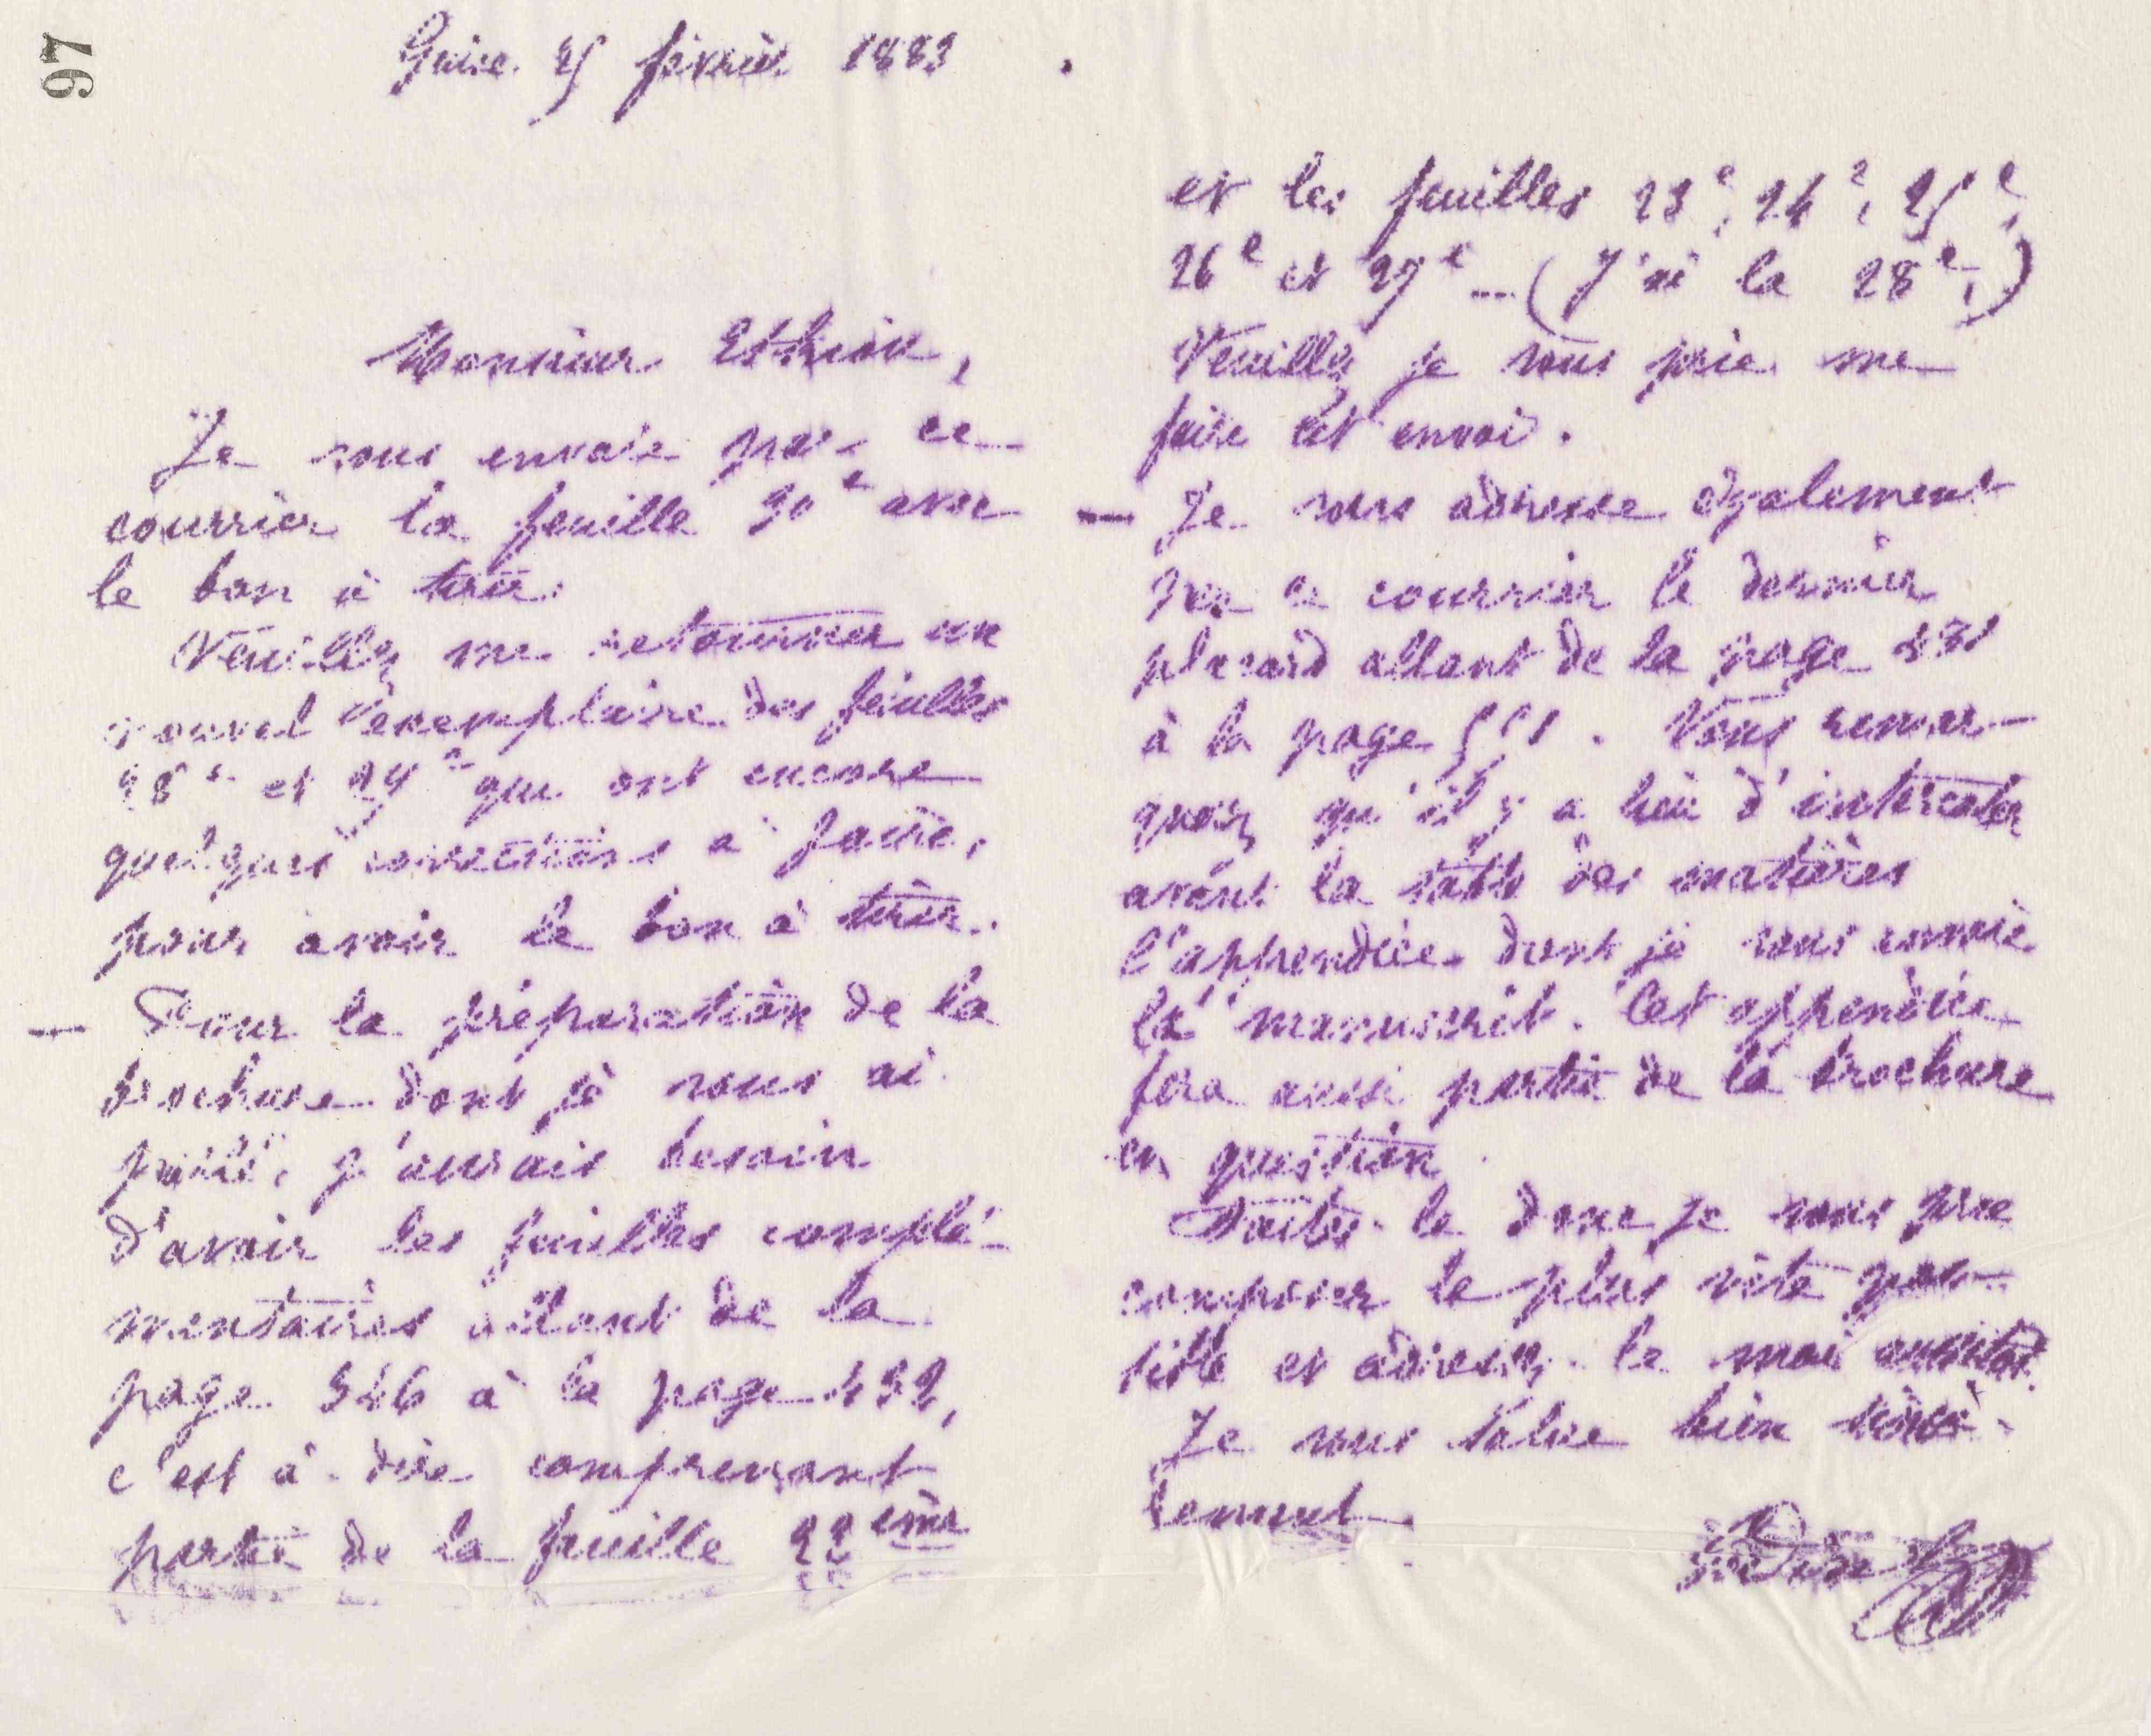 97
Guise 25 février 1883
Monsieur Ethiou,
Je vous envoie par ce
courrier la feuille 30e avec
le bon à tirer.
Veuillez me retourner un
nouvel exemplaire des feuilles
28e et 29e qui ont encore
quelques corrections à faire,
pour avoir le bon à tirer.
— Pour la préparation de la
brochure dont je vous ai
parlé, j'aurais besoin
d'avoir les feuilles complé-
mentaires allant de la
page 346 à la page 432,
c'est à dire comprenant
partie de la feuille 22ème
et les feuilles 23e, 24e, 25e,
26e et 27e — (J'ai la 28e,)
Veuillez je vous prie me
faire cet envoi.
— Je vous adresse également
par ce courrier le dernier
placard allant de la page
à la page. Vous remar-
querez qu'il y a lieu d'intercaler
avant la table des matières
l'appendice dont je vous envoie
le manuscrit. Cet appendice
fera aussi partie de la brochure
en question.
Faites-le donc je vous prie
composer le plus vite pos-
sible et adressez-le moi aussitôt.
Je vous salue bien
Godin